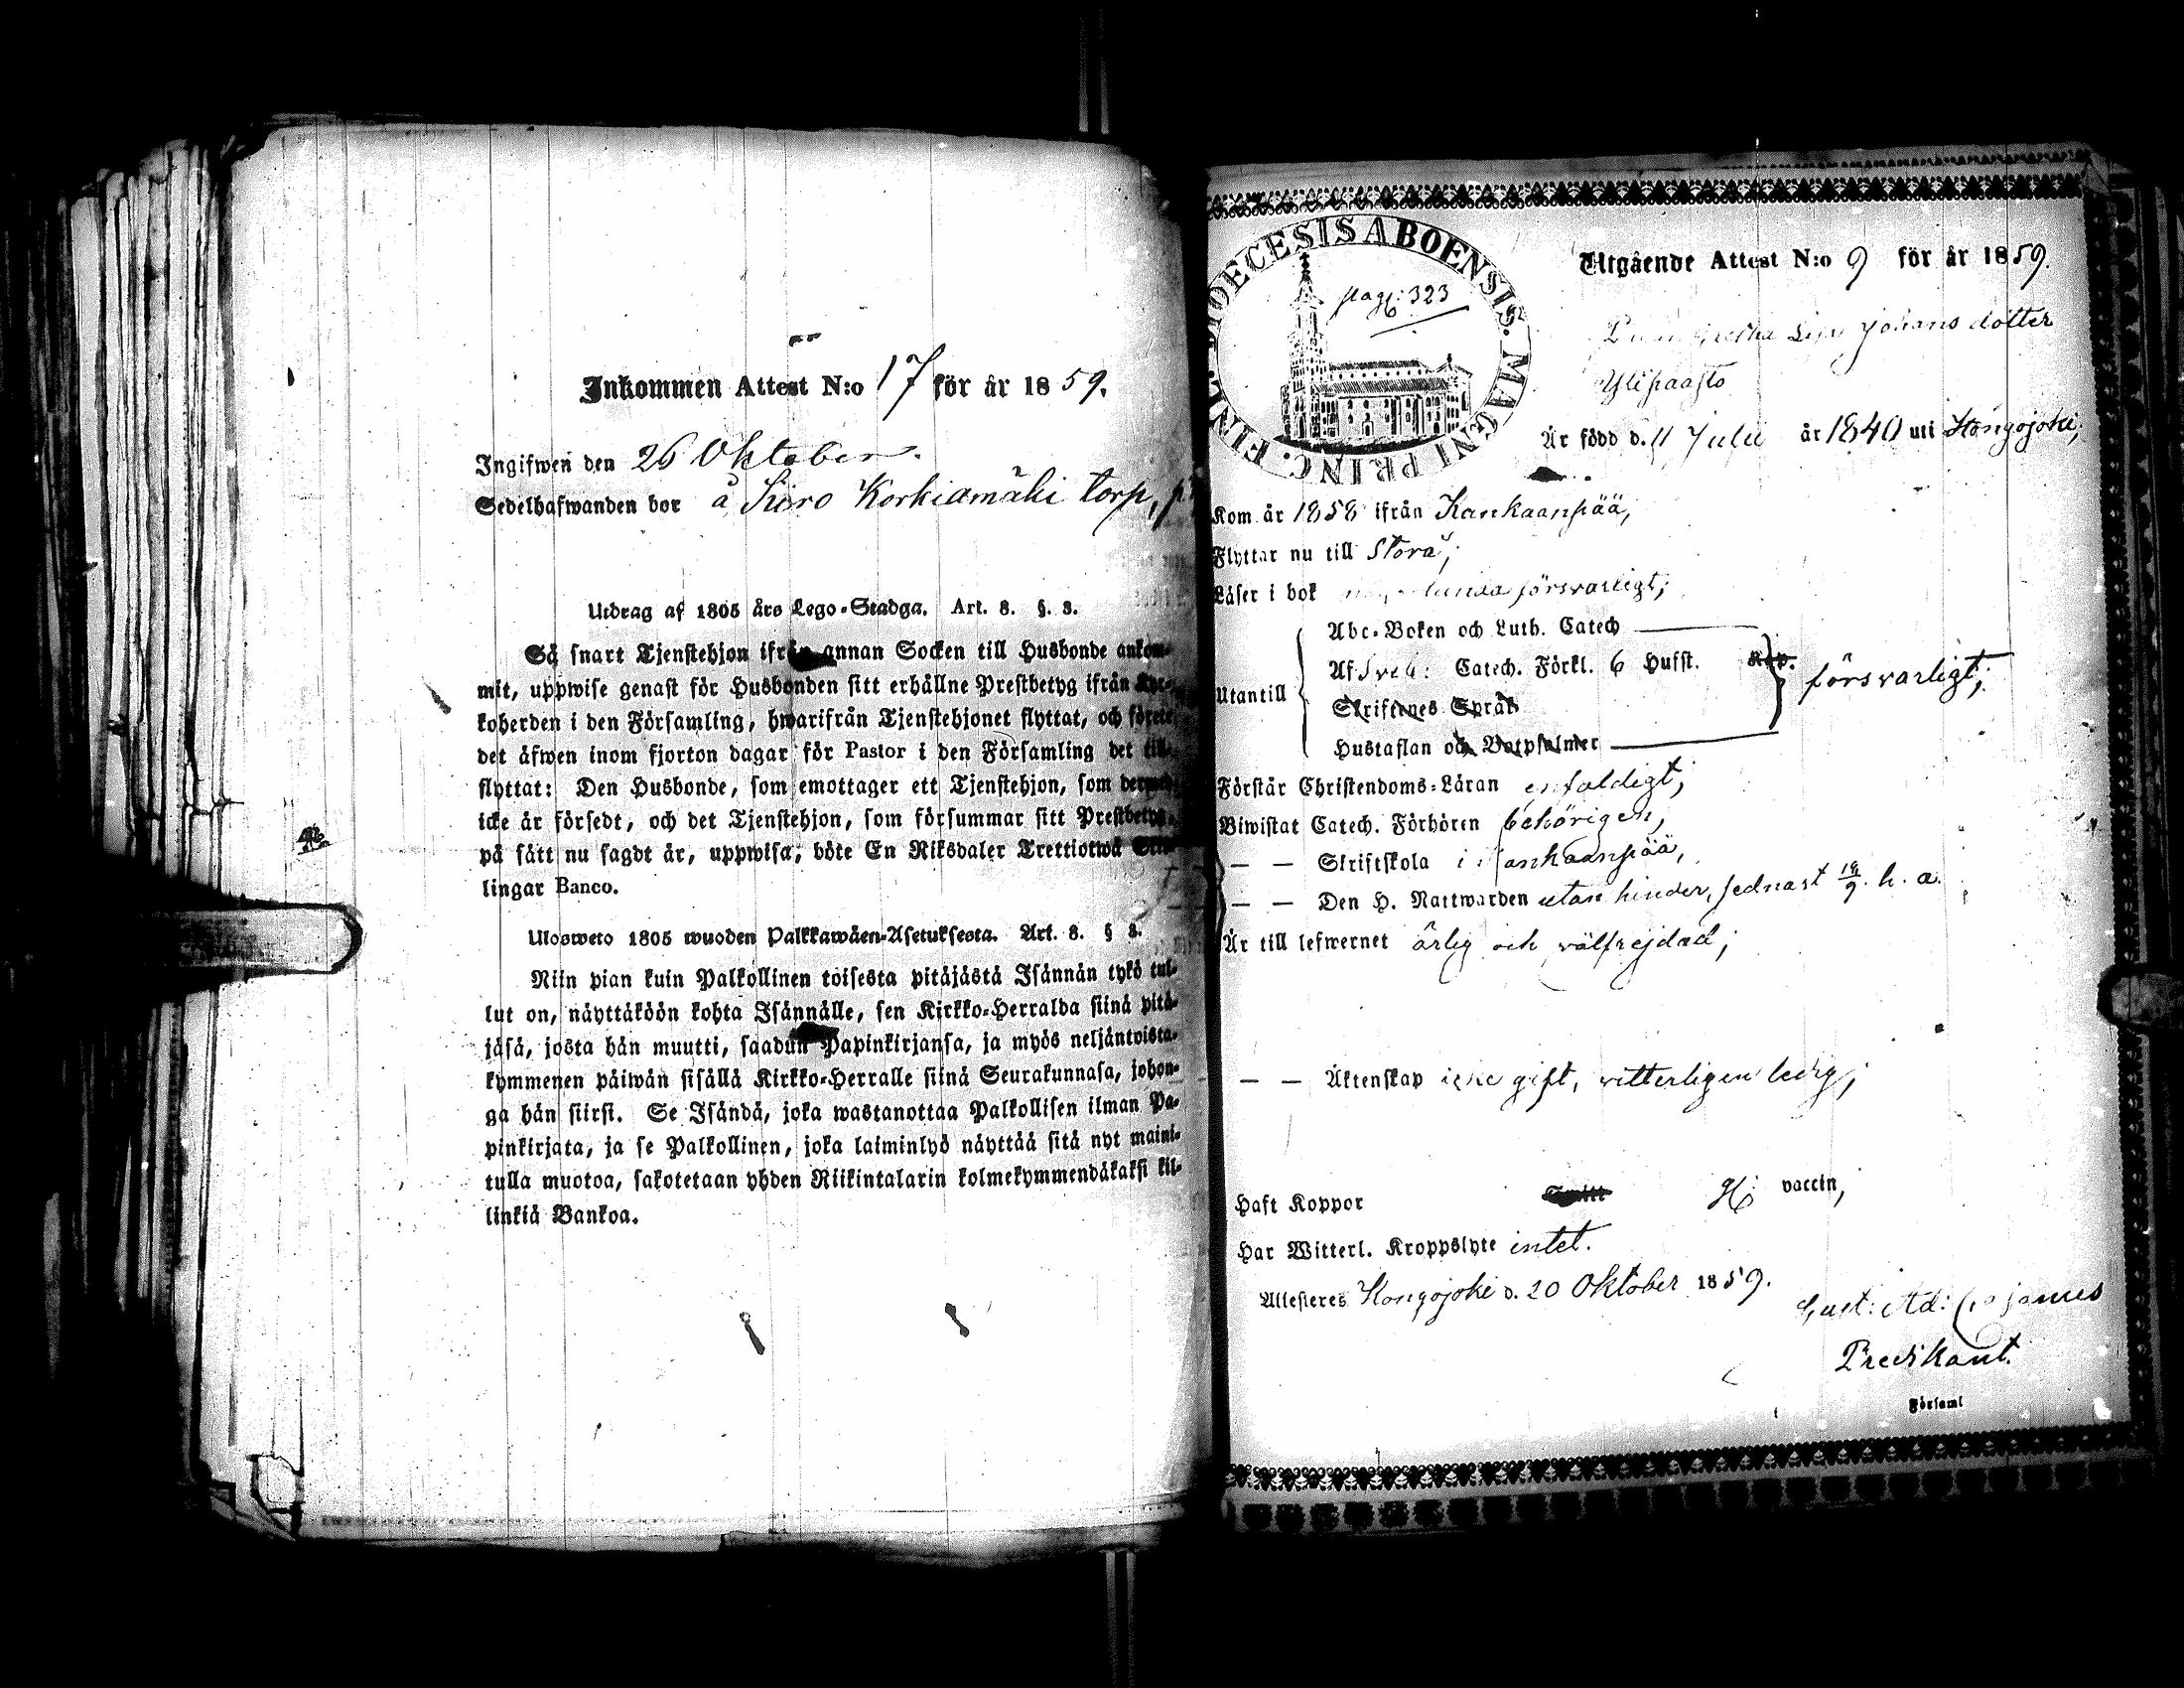 Inkommen Attest N:o 17 för år 1859.
Ingifwen den 26 Oktober.
Sedelhafwanden bor å Kiero Korkiamäki torp,
Utdrag af 1805 års Lego-Stadga. Art. 8. §. 3.
Så snart Tjenstehjon ifrån annan Socken till Husbonde ankom-
mit, uppwise genast för Husbonden sitt erhållne Prestbetyg ifrån Kyr-
koherden i den Församling, hwarifrån Tjenstehjonet flyttat, och förete
det äfwen inom fjorton dagar för Pastor i den Församling det till-
flyttat: Den Husbonde, som emottager ett Tjenstehjon, som dermed
icke är försedt, och det Tjenstehjon, som försummar sitt Prestbetyg,
på sätt nu sagdt är, uppwisa, böte En Riksdaler Trettiotwå
lingar Banco.
Ulosweto 1805 wuoden Palkkawäen-Asetuksesta. Art. 8. § 3.
Niin pian kuin Palkollinen toisesta pitäjästä Isännän tykö tul-
lut on, näyttäköön kohta Isännälle, sen Kirkko-Herralda siinä pitä-
jäsä, josta hän muutti, saadun Papinkirjansa, ja myös neljäntoista-
kymmenen päiwän sisällä Kirkko-Herralle siinä Seurakunnasa, johon-
ga hän siirsi. Se Isändä, joka wastanottaa Palkollisen ilman Pa-
pinkirjata, ja se Palkollinen, joka laiminlyö näyttää sitä nyt maini-
tulla muotoa, sakotetaan yhden Riikintalarin kolmekymmendäkaksi kil-
linkiä Bankoa.
DIOECESIS ABOENSIS. MAGNI PRINC. FINL.
pag: 323
Utgående Attest N:o 9 för år 1859.
Lisa Johansdotter
Ylipaasto
Är född d. 11 Julii år 1840 uti Hongojoki,
Kom år 1858 ifrån Kankaanpää,
Flyttar nu till Storå,
Läser i bok försvarligt;
Utantill
Abc-Boken och Luth. Catech
Af Sveb: Catech. Förkl. 6 Hufst. Kap.
Skriftenes Språk
Hustaflan och Botpsalmer
försvarligt;
Förstår Christendoms-Läran enfaldigt;
Biwistat Catech. Förhören behörigen,
— — Skriftskola i Kankaanpää,
— — Den H. Nattwarden utan hinder, sednast 18/9 h. a.
Är till lefwernet ärlig och välfrejdad;
— — Äktenskap icke gift, vitterligen ledig;
Haft Koppor vaccin,
Har Witterl. Kroppslyte intet.
Attesteres Hongojoki d. 20 Oktober 1859.
Gust: Ad:
Predikant.
Församl